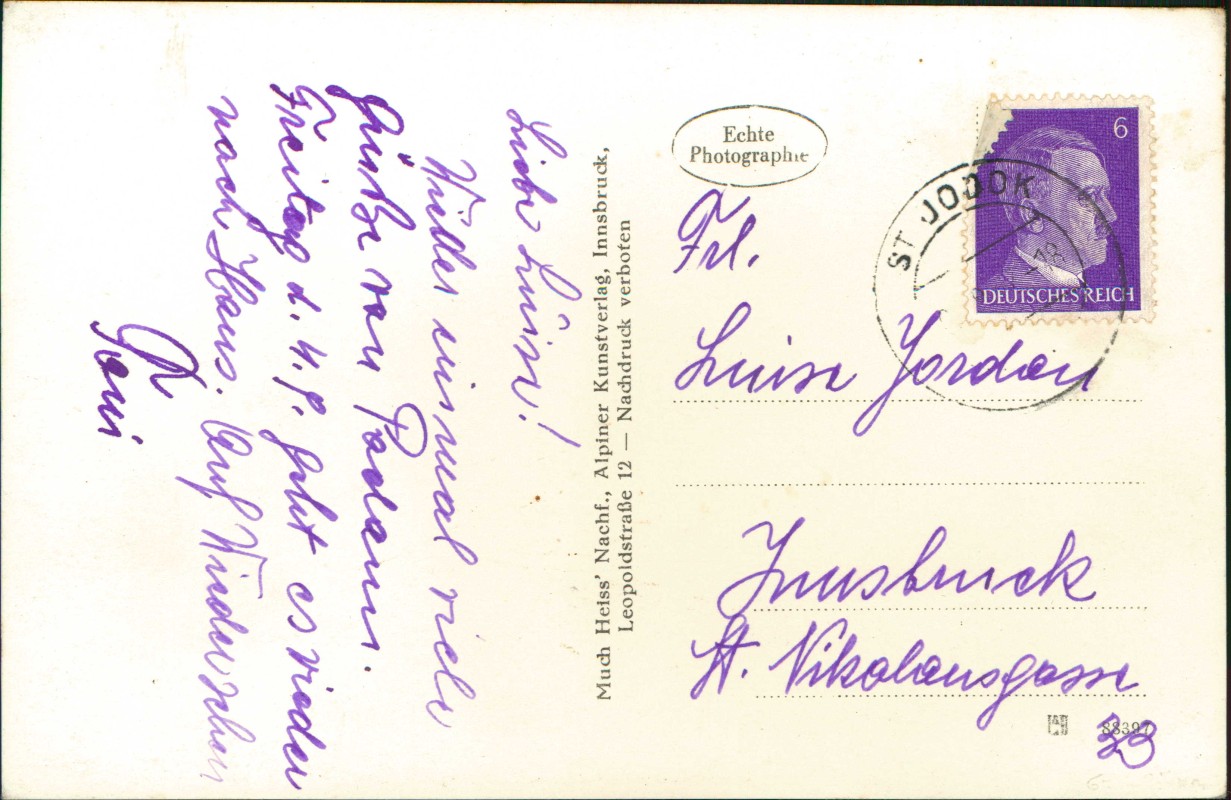 Liebe Luise!
Wieder einmal viele
Grüße von Padaun.
Freitag d. 4. 9. geht es wieder
nach Haus. Auf Wiedersehen
Much Heiss' Nachf., Alpiner Kunstverlag, Innsbruck,
Leopoldstraße 12 — Nachdruck verboten
Echte
Photographie
6
DEUTSCHES REICH
ST JODOK
18
Frl.
Luise Jordan
Innsbruck
St. Nikolausgasse
33
88397